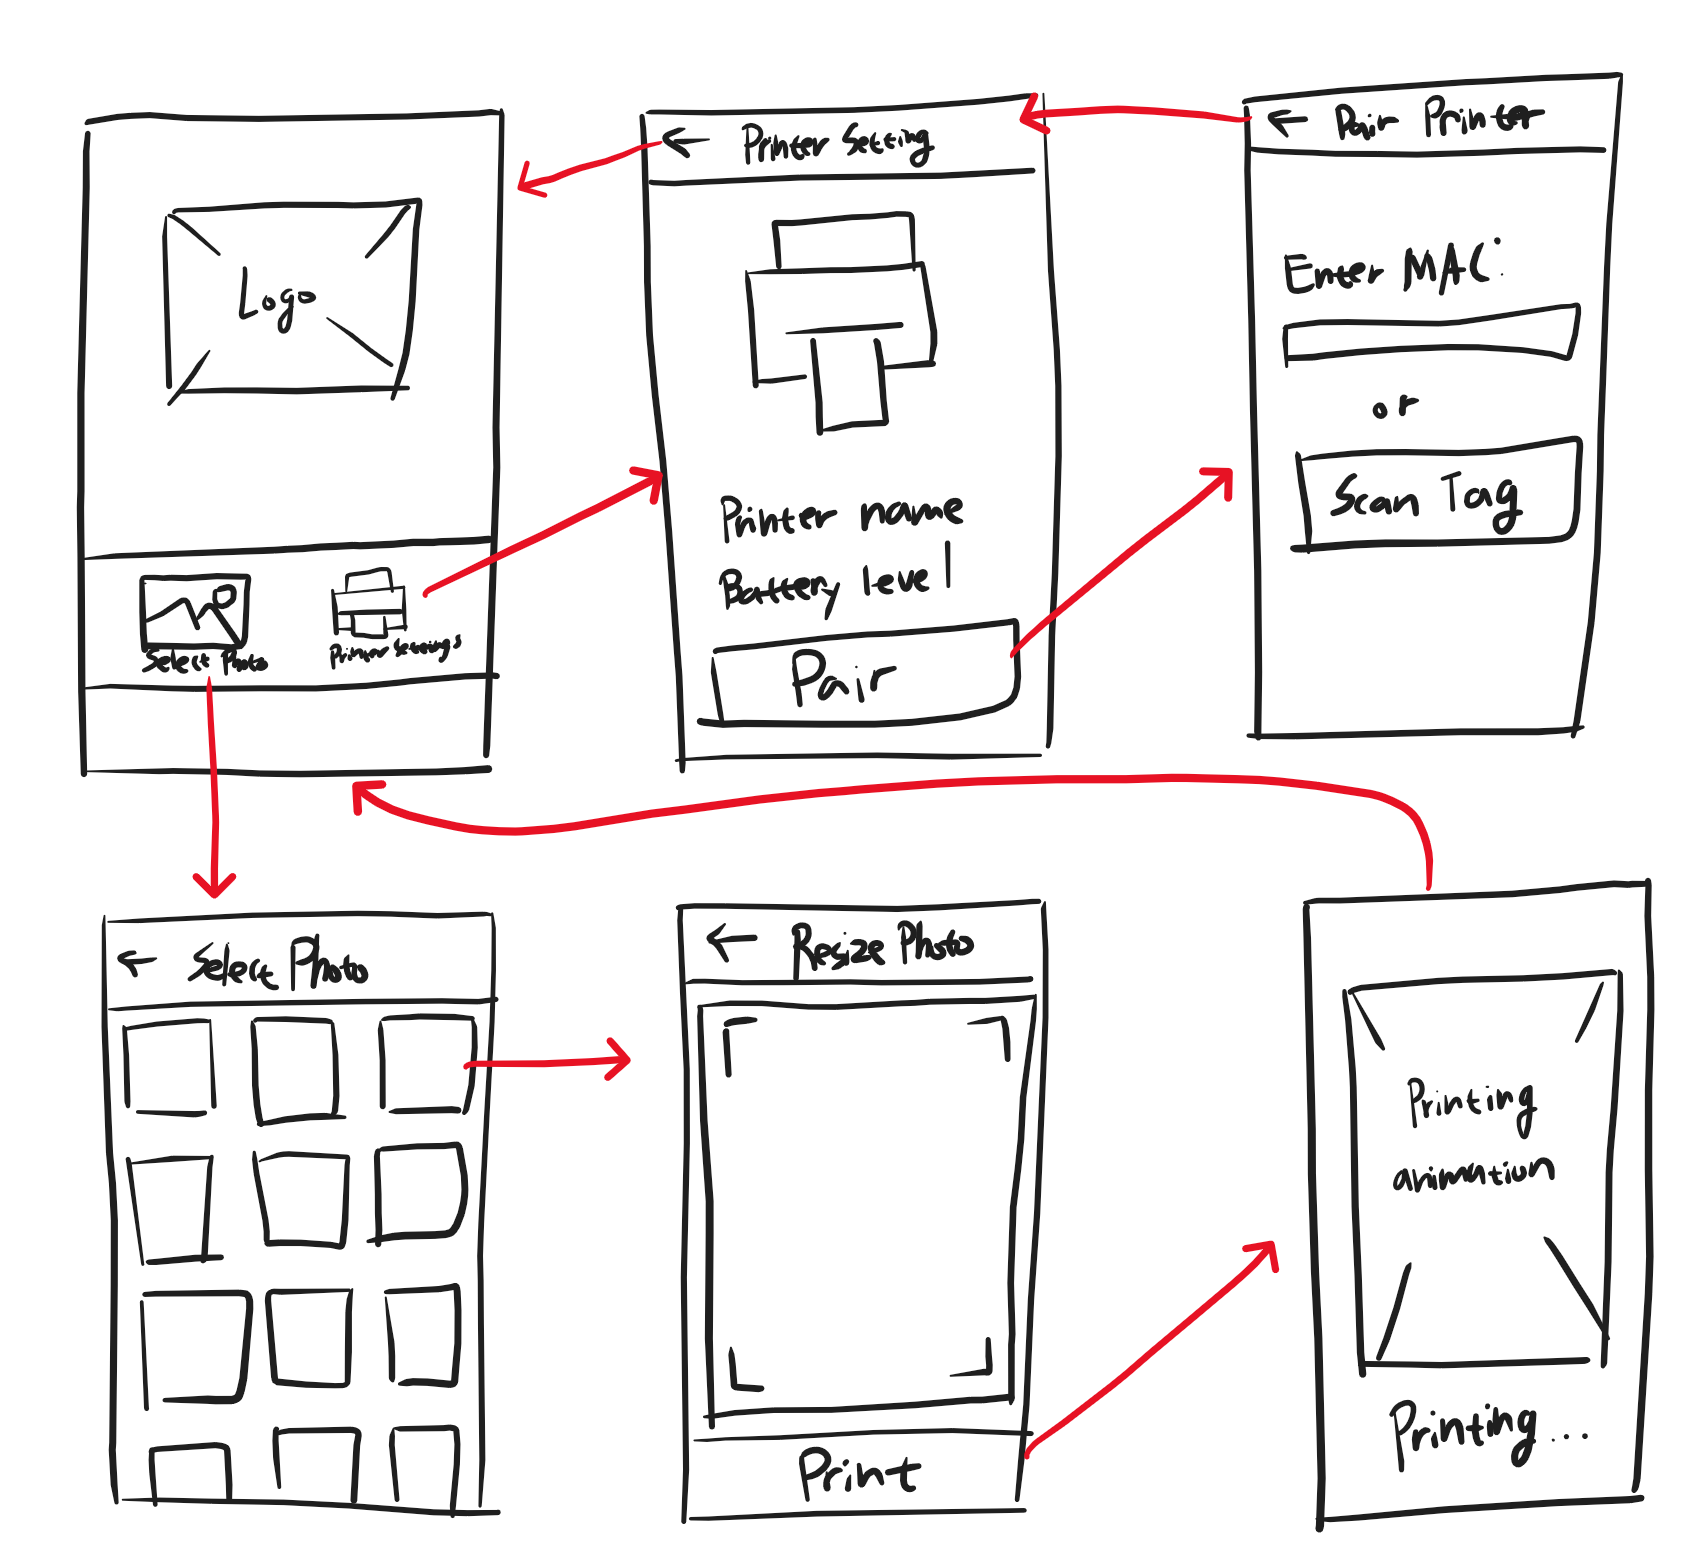 Logo
Select Photo
Printer Settings
Printer Setting
Printer name
Battery level
Pair
Pair Printer
Enter MAC:
or
Scan Tag
Select Photo
Resize Photo
Print
Printing
animation
Printing...